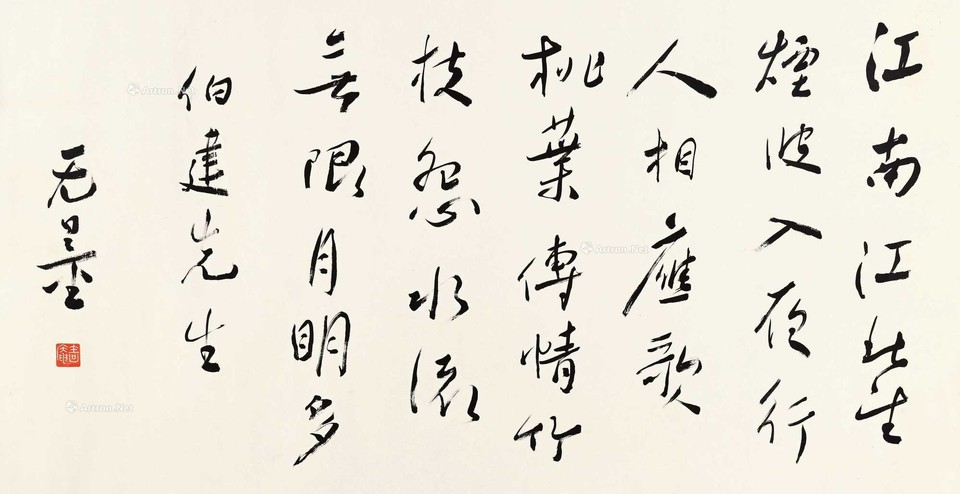 江南江北望
煙波入夜行
人相應歌
桃葉傳情竹
枝怨水流
無限月明多
伯建先生
无量
Artron.Net
Artron.Net
Artron.Net